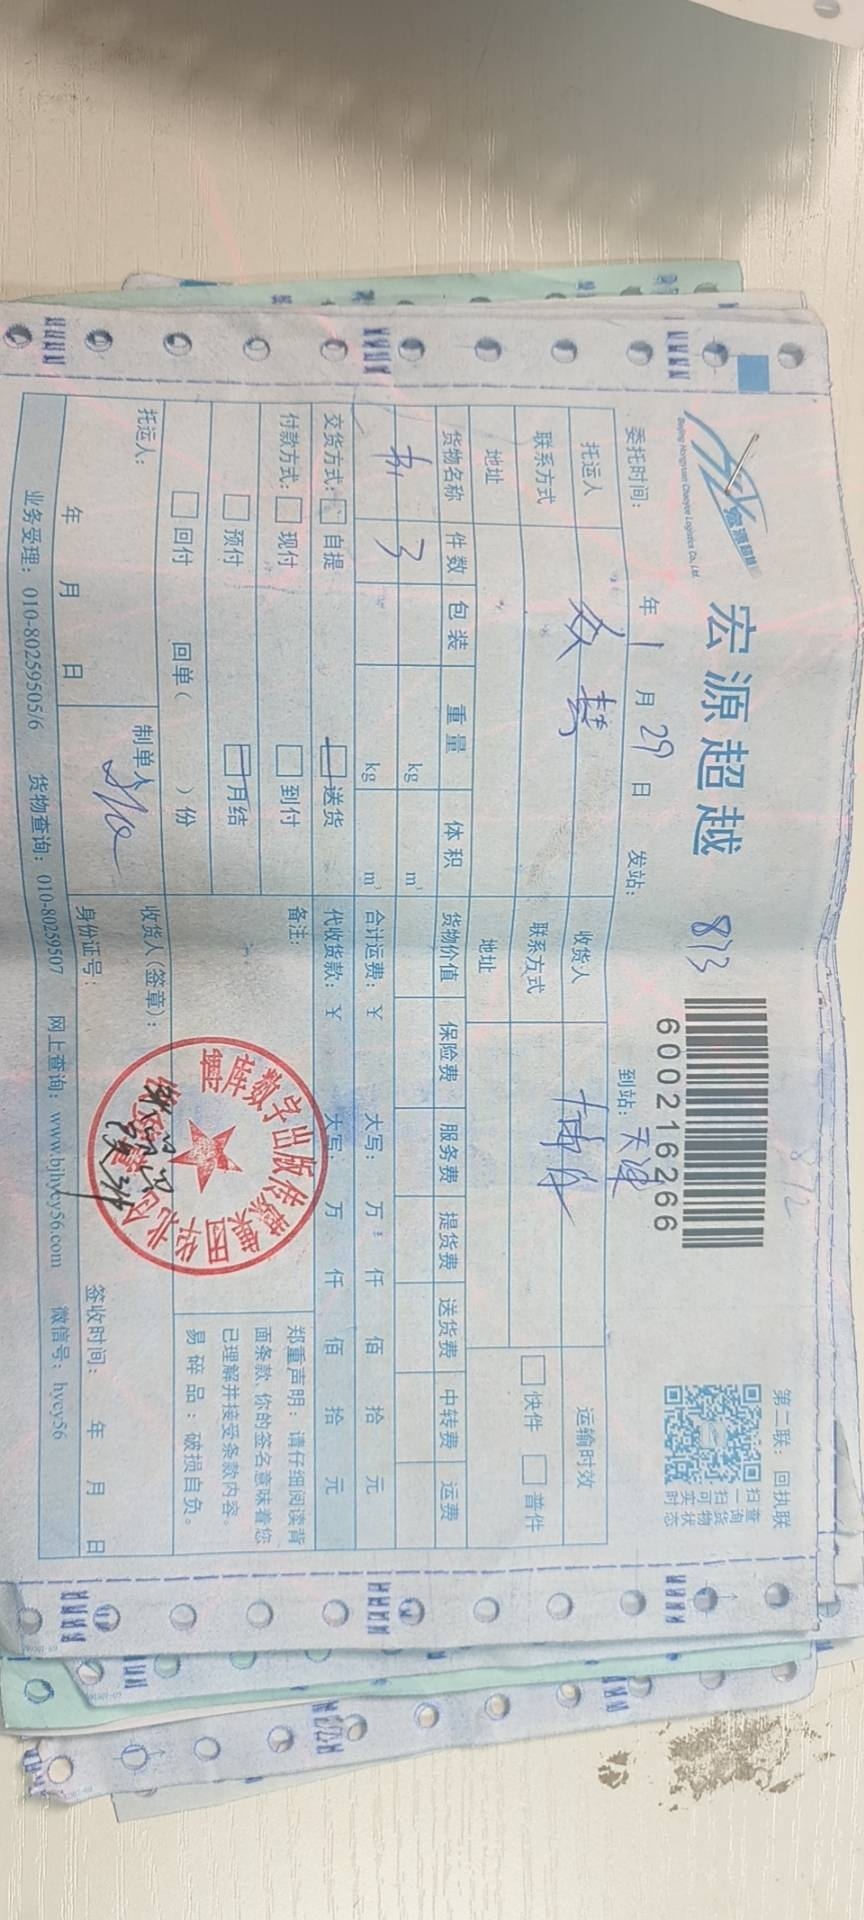 第二联：回执联
宏源超越
Beijing Hongyuan Chaoyue Logistics Co., Ltd.
宏源超越 813
600216266
扫一扫可实时
查询货物状态
委托时间： 年 1 月 29 日 发站： 到站：天津
托运人 收货人 运输时效
联系方式 联系方式 快件 普件
地址 地址
货物名称 件数 包装 重量 体积 货物价值 保险费 服务费 提货费 送货费 中转费 运费
书 3 kg m³
kg m³ 合计运费：¥ 大写： 万 仟 佰 拾 元
交货方式： 自提 送货 代收货款：¥ 大写： 万 仟 佰 拾 元
付款方式： 现付 到付 备注：
预付 月结
回付 回单（ ）份
郑重声明：请仔细阅读背
面条款 你的签名意味着您
已理解并接受条款内容。
易碎品：破损自负。
数字出版传
托运人： 制单人 收货人（签章）：
年 月 日 身份证号： 签收时间： 年 月 日
业务受理：010-80259505/6 货物查询：010-80259507 网上查询：www.bjhycy56.com 微信号：hycy56